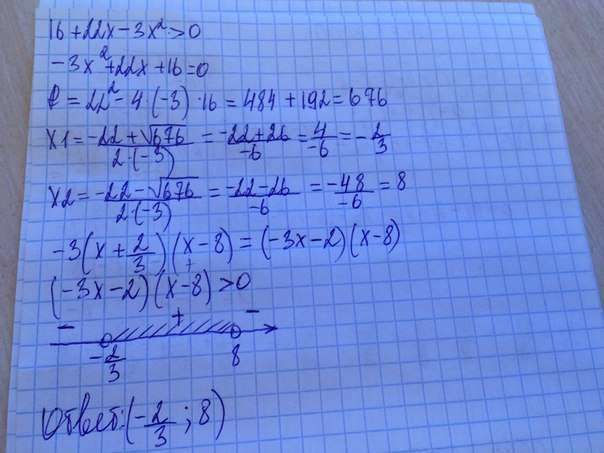 16+22x-3x²>0
-3x²+22x+16=0
D=22²-4(-3)·16=484+192=676
x1=(-22+√676)/(2·(-3))=(-22+26)/(-6)=4/(-6)=-2/3
x2=(-22-√676)/(2·(-3))=(-22-26)/(-6)=(-48)/(-6)=8
-3(x+2/3)(x-8)=(-3x-2)(x-8)
+
(-3x-2)(x-8)>0
- + -
-2/3 8
Ответ:(-2/3;8)